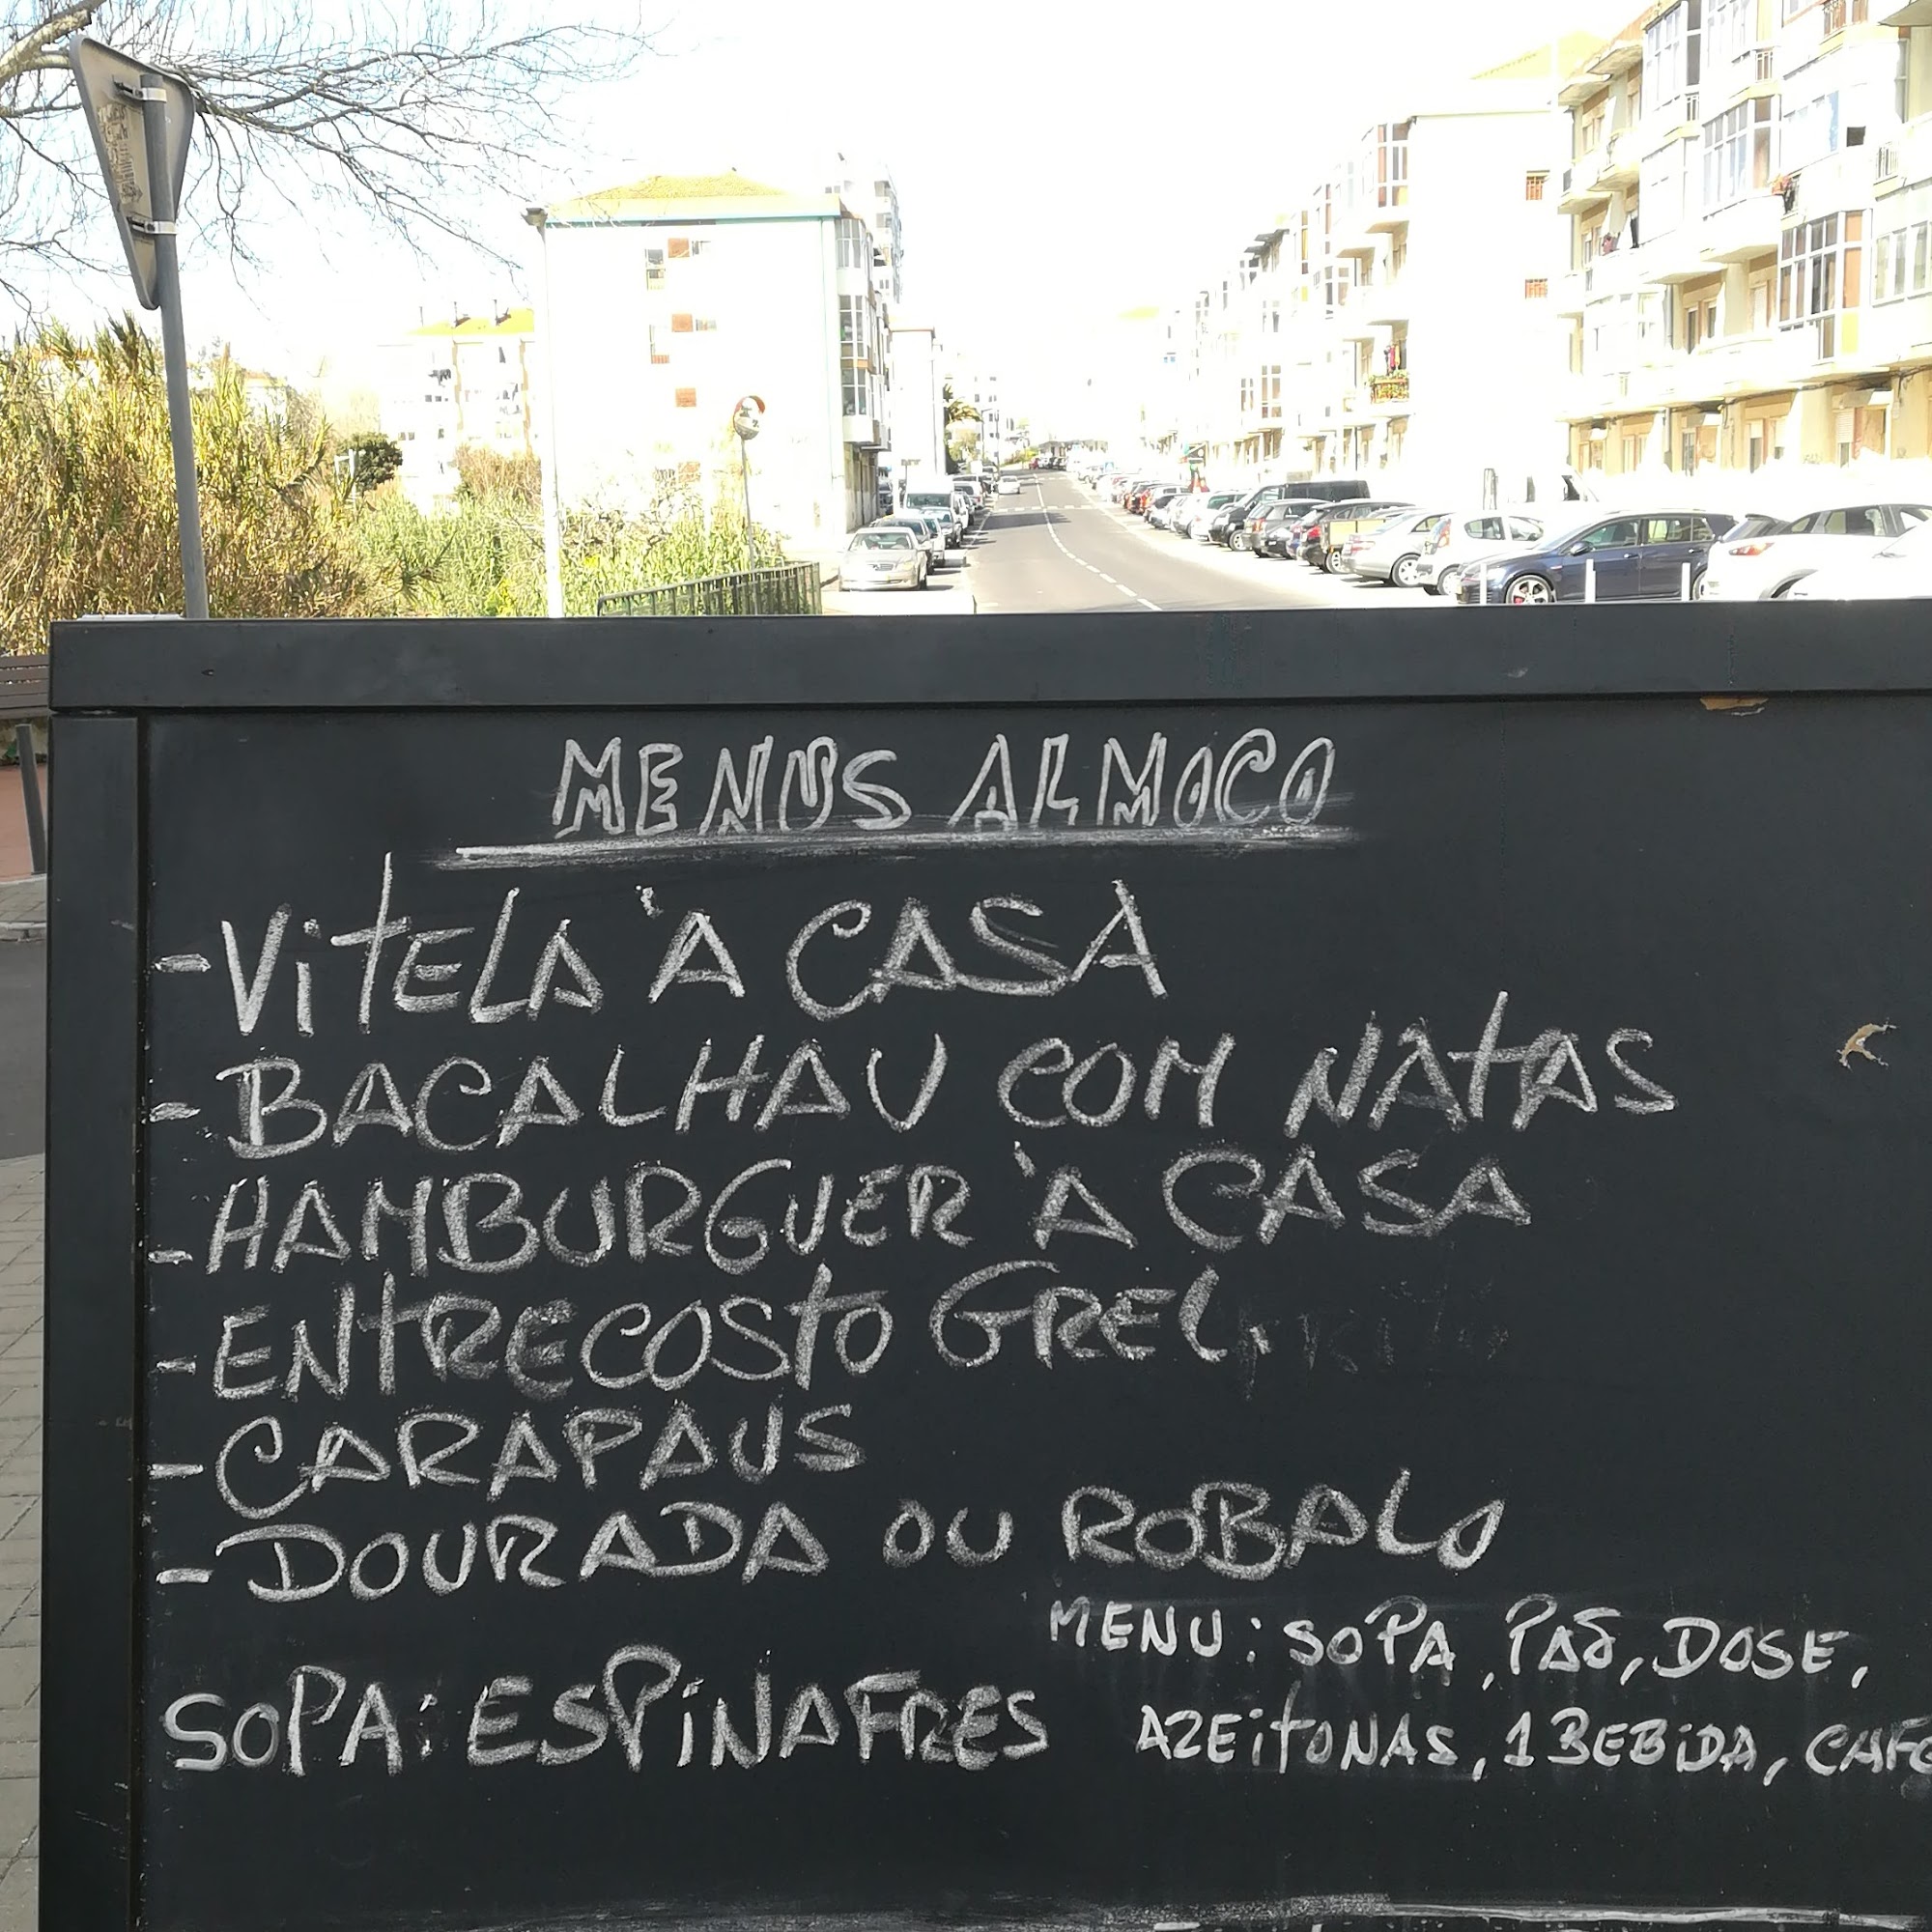 MENUS ALMOCO
-VITELA À CASA
-BACALHAU COM NATAS
-HAMBURGUER À CASA
-ENTRECOSTO GREL.
-CARAPAUS
-DOURADA OU ROBALO
MENU: SOPA, PÃO, DOSE,
SOPA: ESPINAFRES
AZEITONAS, 1 BEBIDA, CAFE